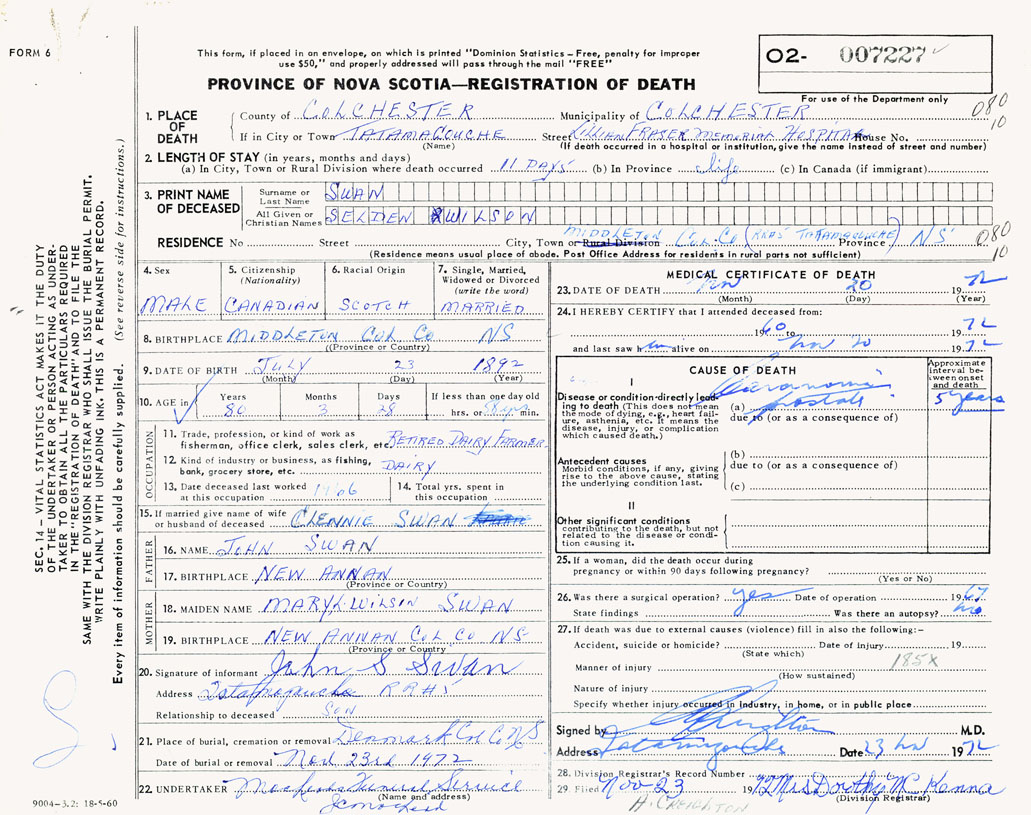 FORM 6
This form, if placed in an envelope, on which is printed "Dominion Statistics – Free, penalty for improper
use $50," and properly addressed will pass through the mail "FREE"
PROVINCE OF NOVA SCOTIA—REGISTRATION OF DEATH
O2- 007227
For use of the Department only
080
10
1. PLACE OF DEATH County of COLCHESTER Municipality of COLCHESTER
If in City or Town TATAMAGOUCHE Street LILLIAN FRASER MEMORIAL HOSPITAL House No.
(Name) (If death occurred in a hospital or institution, give the name instead of street and number)
2. LENGTH OF STAY (in years, months and days)
(a) In City, Town or Rural Division where death occurred 11 DAYS (b) In Province life (c) In Canada (if immigrant)
3. PRINT NAME OF DECEASED Surname or Last Name SWAN
All Given or Christian Names SELDEN WILSON
RESIDENCE No Street City, Town or Rural Division MIDDLETON Col. Co (NEAR TATAMAGOUCHE) Province NS
080
10
(Residence means usual place of abode. Post Office Address for residents in rural parts not sufficient)
4. Sex MALE
5. Citizenship (Nationality) CANADIAN
6. Racial Origin SCOTCH
7. Single, Married, Widowed or Divorced (write the word) MARRIED
8. BIRTHPLACE MIDDLETON COL CO NS
(Province or Country)
9. DATE OF BIRTH JULY 23 1892
(Month) (Day) (Year)
10. AGE in Years 80 Months 3 Days 28 If less than one day old hrs. or min.
OCCUPATION
11. Trade, profession, or kind of work as
fisherman, office clerk, sales clerk, etc. RETIRED DAIRY FARMER
12. Kind of industry or business, as fishing,
bank, grocery store, etc. DAIRY
13. Date deceased last worked
at this occupation 1966
14. Total yrs. spent in
this occupation
15. If married give name of wife
or husband of deceased CLENNIE SWAN
FATHER
16. NAME JOHN SWAN
17. BIRTHPLACE NEW ANNAN
(Province or Country)
MOTHER
18. MAIDEN NAME MARY L. WILSIN SWAN
19. BIRTHPLACE NEW ANNAN COL CO NS
(Province or Country)
20. Signature of informant John S Swan
Address Tatamagouche RR#1
Relationship to deceased SON
21. Place of burial, cremation or removal Denmark Col Co NS
Date of burial or removal Nov 23rd 1972
22. UNDERTAKER Funeral Service
(Name and address)
MEDICAL CERTIFICATE OF DEATH
23. DATE OF DEATH Nov 20 1972
(Month) (Day) (Year)
24. I HEREBY CERTIFY that I attended deceased from:
1960 to 1972
and last saw him alive on Nov 20 1972
CAUSE OF DEATH
Approximate interval between onset and death
I
Disease or condition directly leading to death (This does not mean
the mode of dying, e.g., heart failure, asthenia, etc. It means the
disease, injury, or complication
which caused death.)
(a) Carcinoma prostate 5 years
due to (or as a consequence of)
Antecedent causes
Morbid conditions, if any, giving
rise to the above cause, stating
the underlying condition last.
(b)
due to (or as a consequence of)
(c)
II
Other significant conditions
contributing to the death, but not
related to the disease or condition causing it.
25. If a woman, did the death occur during
pregnancy or within 90 days following pregnancy?
(Yes or No)
26. Was there a surgical operation? yes Date of operation 1967
State findings Was there an autopsy? no
27. If death was due to external causes (violence) fill in also the following:–
Accident, suicide or homicide? Date of injury 19
(State which)
Manner of injury 185X
(How sustained)
Nature of injury
Specify whether injury occurred in Industry, in home, or in public place
Signed by M.D.
Address Tatamagouche Date 23 Nov 1972
28. Division Registrar's Record Number
29. Filed Nov 23 1972 Mrs Dorothy McKenna
(Division Registrar)
H. CREIGHTON
SEC. 14 – VITAL STATISTICS ACT MAKES IT THE DUTY
OF THE UNDERTAKER OR PERSON ACTING AS UNDERTAKER TO OBTAIN ALL THE PARTICULARS REQUIRED
IN THE "REGISTRATION OF DEATH" AND TO FILE THE
SAME WITH THE DIVISION REGISTRAR WHO SHALL ISSUE THE BURIAL PERMIT.
WRITE PLAINLY WITH UNFADING INK. THIS IS A PERMANENT RECORD.
Every item of information should be carefully supplied. (See reverse side for instructions.)
9004-3.2: 18-5-60